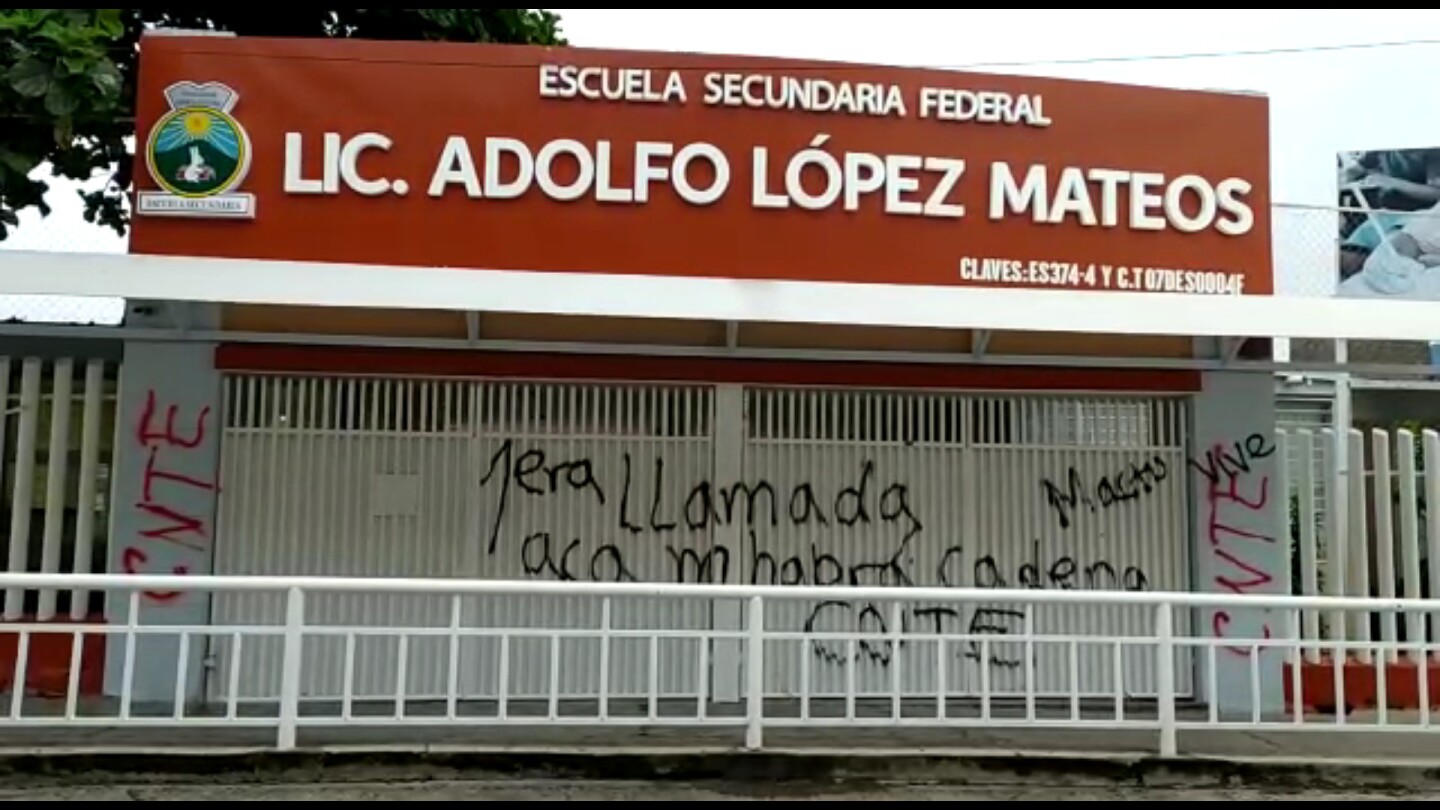 ESCUELA SECUNDARIA FEDERAL
LIC. ADOLFO LÓPEZ MATEOS
CLAVES:ES374-4 Y C.T 07DES0004F
ESCUELA SECUNDARIA
CNTE
1era LLamada
aca habrá cadena
CNTE
Mactu Vive
CNTE